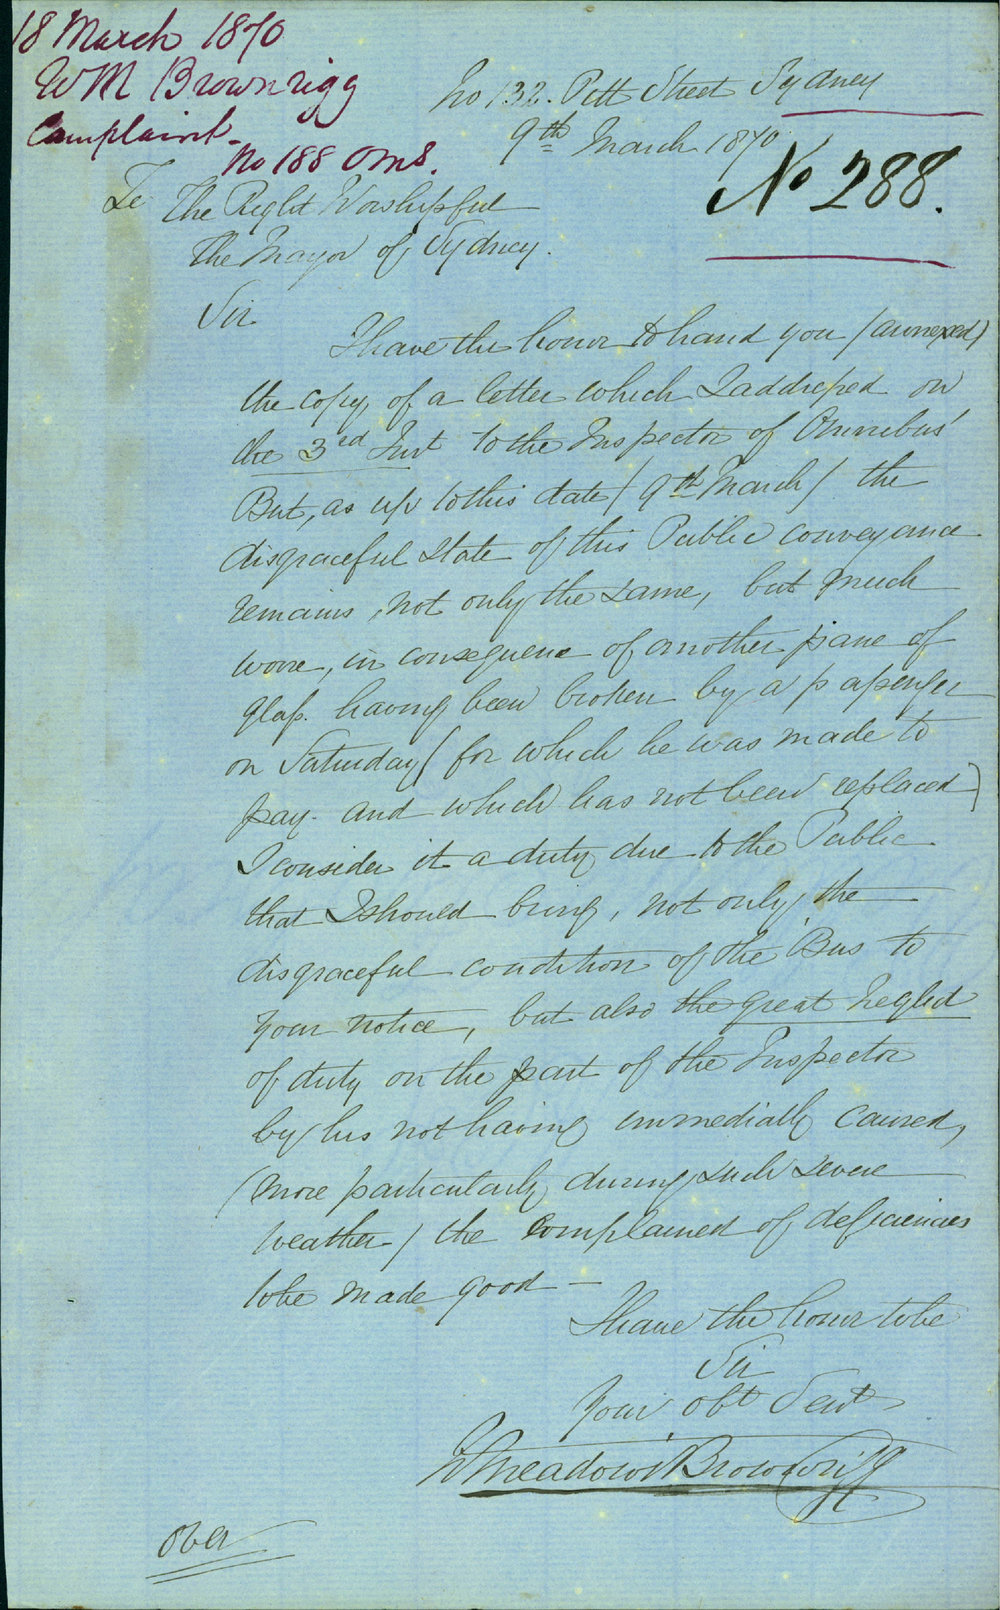 18 March 1870
WM Brownrigg
Complaint
No 188 Oms.
No 132. Pitt Street Sydney
9th March 1870
No 288.
To The Right Worshipful
The Mayor of Sydney.
Sir
I have the honor to hand you (annexed)
the copy of a letter which I addressed on
the 3rd Inst to the Inspector of Omnibus'
But, as up to this date (9th March) the
disgraceful state of this Public conveyance
remains, not only the same, but much
worse, in consequence of another pane of
glass having been broken by a passenger
on Saturday (for which he was made to
pay. and which has not been replaced)
I consider it a duty due to the Public
that I should bring, not only the
disgraceful condition of the Bus to
your notice, but also the great neglect
of duty on the part of the Inspector
by his not having immediatly caused,
(more particularly during such severe
weather) the complained of deficiencies
to be made good —
I have the honor to be
Sir
Your obt Servt
W Meadows Brownrigg
Over